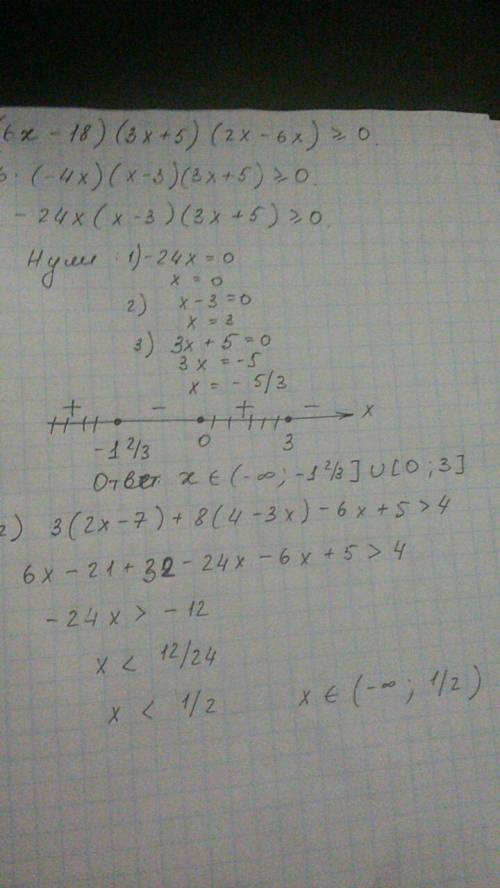 (6x - 18)(3x+5)(2x-6x) ≥ 0.
6·(-4x)(x-3)(3x+5) ≥ 0.
-24x(x-3)(3x+5) ≥ 0.
Нули: 1) -24x = 0
x = 0
2) x-3 = 0
x = 3
3) 3x + 5 = 0
3x = -5
x = - 5/3
+ - + - x
-1 2/3 0 3
Ответ x ∈ (-∞; -1 2/3] ∪ [0; 3]
2) 3(2x-7) + 8(4-3x) - 6x + 5 > 4
6x - 21 + 32 - 24x - 6x + 5 > 4
-24x > -12
x < 12/24
x < 1/2 x ∈ (-∞; 1/2)